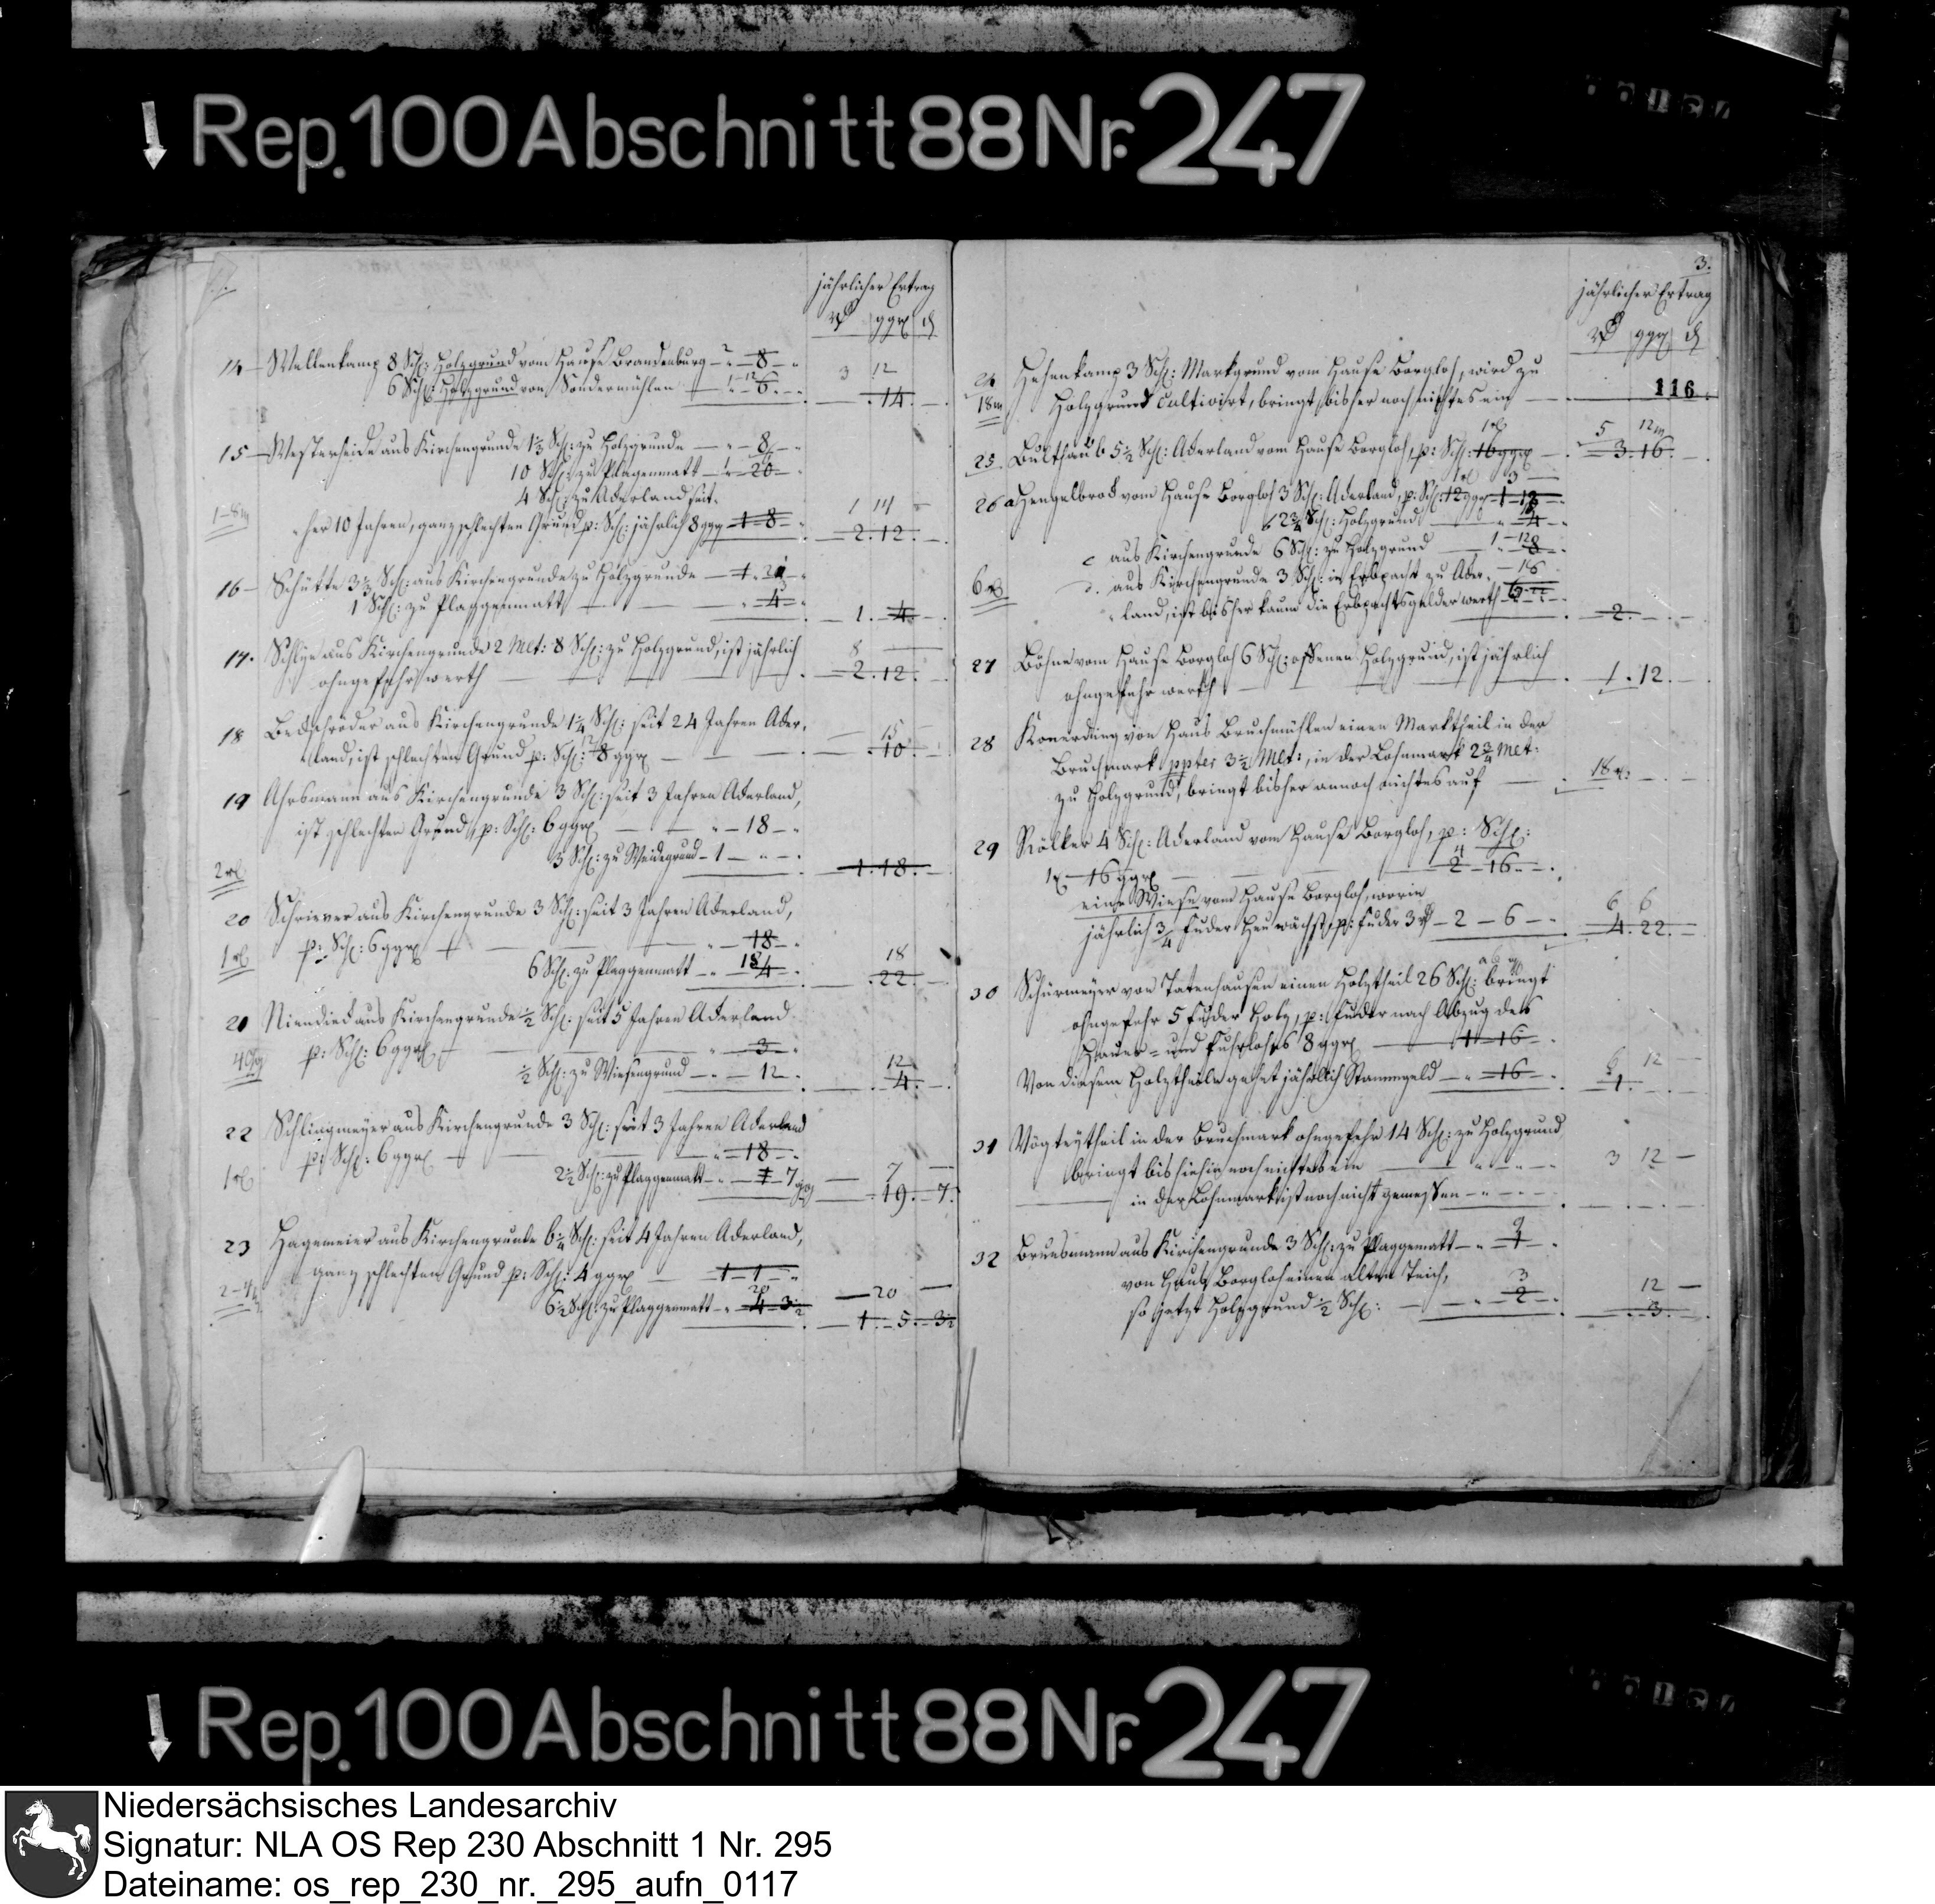 Rep. 100 Abschnitt 88 Nr. 247
jährlicher Ertrag
ggr
14 Wellenkamp 8 Sch: Holzgrund vom Hause Brandenburg 2 8
6 Sch: Holzgrund von Sondermühlen 1 12 6
3 12
14
15 Westerheide aus Kirchengrunde 1½ Sch: zu Holzgrunde 8
10 Sch: zu Plaggenmatt 20
4 Sch: zu Ackerland seit
her 10 Jahren, ganz schlechten Grund p: Sch: jährlich 8 ggr 1 8
1 14
2. 12.
16 Schütte 3½ Sch: aus Kirchengrunde zu Holzgrunde
1 Sch: zu Plaggenmatt 4
1. 4
17. Schlye aus Kirchengrunde 2 Mlt: 8 Sch: zu Holzgrund, ist jährlich
ohngefehr werth
8
2. 12.
18 Beckschröder aus Kirchengrunde 1¼ Sch: seit 24 Jahren Acker,
land, ist schlechten Grund p: Sch: 8 ggr
15
10
19 Ahrbmann aus Kirchengrunde 3 Sch: seit 3 Jahren Ackerland,
ist schlechten Grund, p: Sch: 6 ggr 18
3 Sch: zu Weidegrund 1
1. 18.
20 Schriever aus Kirchengrunde 3 Sch: seit 3 Jahren Ackerland,
p: Sch: 6 ggr 18
6 Sch: zu Plaggenmatt 18 4
18
22.
21 Niendieck aus Kirchengrunde ½ Sch: seit 5 Jahren Ackerland
p: Sch: 6 ggr 3
½ Sch: zu Wiesengrund 12
12
4.
22 Schlingmeyer aus Kirchengrunde 3 Sch: seit 3 Jahren Ackerland
p: Sch: 6 ggr 18
2½ Sch: zu Plaggenmatt 1 7
7
19. 7.
23 Hagemeier aus Kirchengrunde 6¼ Sch: seit 4 Jahren Ackerland,
ganz schlechten Grund p: Sch: 4 ggr 1 1
6½ Sch: zu Plaggenmatt 4 3½
20
1. 5. 3½
3.
jährlicher Ertrag
ggr
116
24 Hesenkamp 3 Sch: Markgrund vom Hause Borgloh, wird zu
Holzgrund cultivirt, bringt bisher noch nichtes ein
25 Bülthaub 5½ Sch: Ackerland vom Hause Borgloh, p: Sch: 16 ggr
5 12
3. 16.
26 a Hengelbrock vom Hause Borgloh 3 Sch: Ackerland, p: Sch: 12 ggr 1 12
b 2¾ Sch: Holzgrund 4
c aus Kirchengrunde 6 Sch: zu Holzgrund 8
d. aus Kirchengrunde 3 Sch: in Erbpacht zu Acker,
land, ist bisher kaum die Erbpachtsgelder werth
2.
27 Böhne vom Hause Borgloh 6 Sch: offenen Holzgrund, ist jährlich
ohngefehr werth
1. 12.
28 Konerding von Haus Bruchmühlen einen Marktheil in der
Bruchmark ppter 3½ Mlt:, in der Lohnmark 2¾ Mlt:
zu Holzgrund, bringt bisher annoch nichtes auf
29 Rölker 4 Sch: Ackerland vom Hause Borgloh, p: Sch:
16 ggr 2 16
eine Wiese vom Hause Borgloh, worin
jährlich ¾ Fuder Heu wächst, p: Fuder 3 2 6
6 6
4. 22.
30 Schürmeyer von Tatenhausen einen Holztheil 26 Sch: bringt
ohngefehr 5 Fuder Holz, p: Fuder nach Abzug des
Hauer- und Fuhrlohns 8 ggr 1 16
Von diesem Holztheile gehet jährlich Stammgeld 16
6 12
1.
31 Vögteytheil in der Bruchmark ohngefehr 14 Sch: zu Holzgrund
bringt bishiehin noch nichtes ein
3 12
in der Lohnmark ist noch nicht gemessen
32 Brunsmann aus Kirchengrunde 3 Sch: zu Plaggematt
von Haus Borgloh einen alten Teich,
so jetzt Holzgrund ½ Sch: 2
12
3.
Rep. 100 Abschnitt 88 Nr. 247
Niedersächsisches Landesarchiv
Signatur: NLA OS Rep 230 Abschnitt 1 Nr. 295
Dateiname: os_rep_230_nr._295_aufn_0117